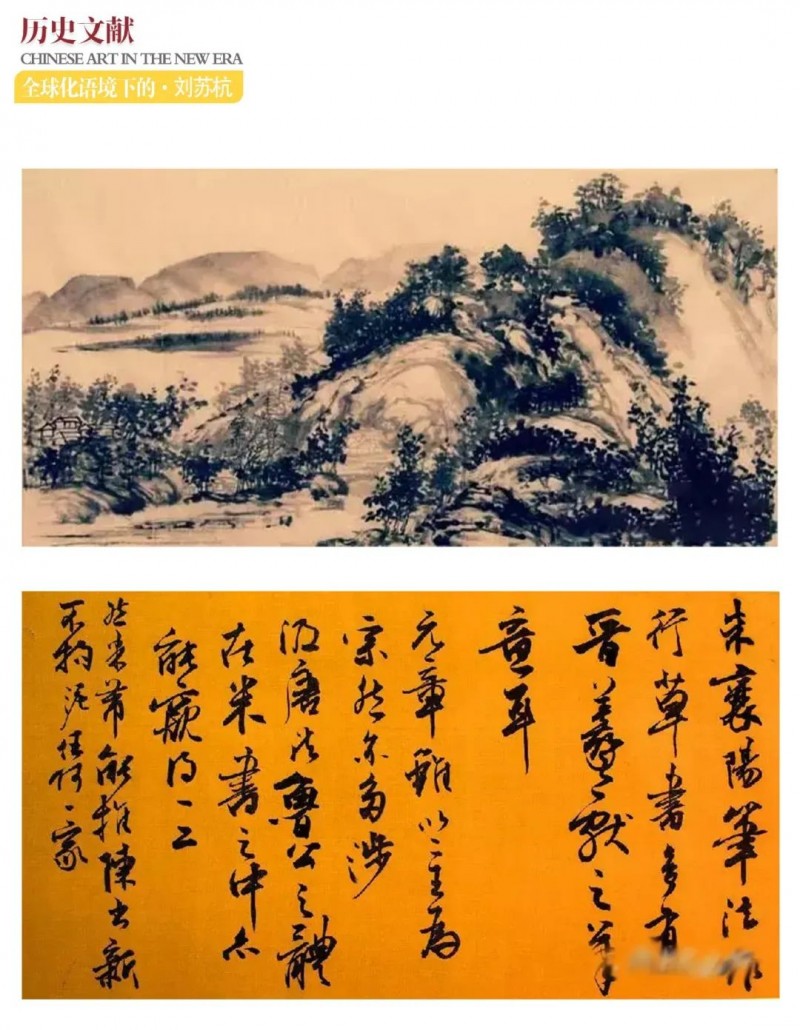 历史文献
CHINESE ART IN THE NEW ERA
全球化语境下的·刘苏杭
米襄陽筆法作
行草書多有
晋羲献之筆
意耳
元章雖以二王為
宗然亦多涉
唐法魯公之體
在米書之中亦
能窺得一二
然米芾能推陳出新
不拘泥任何一家